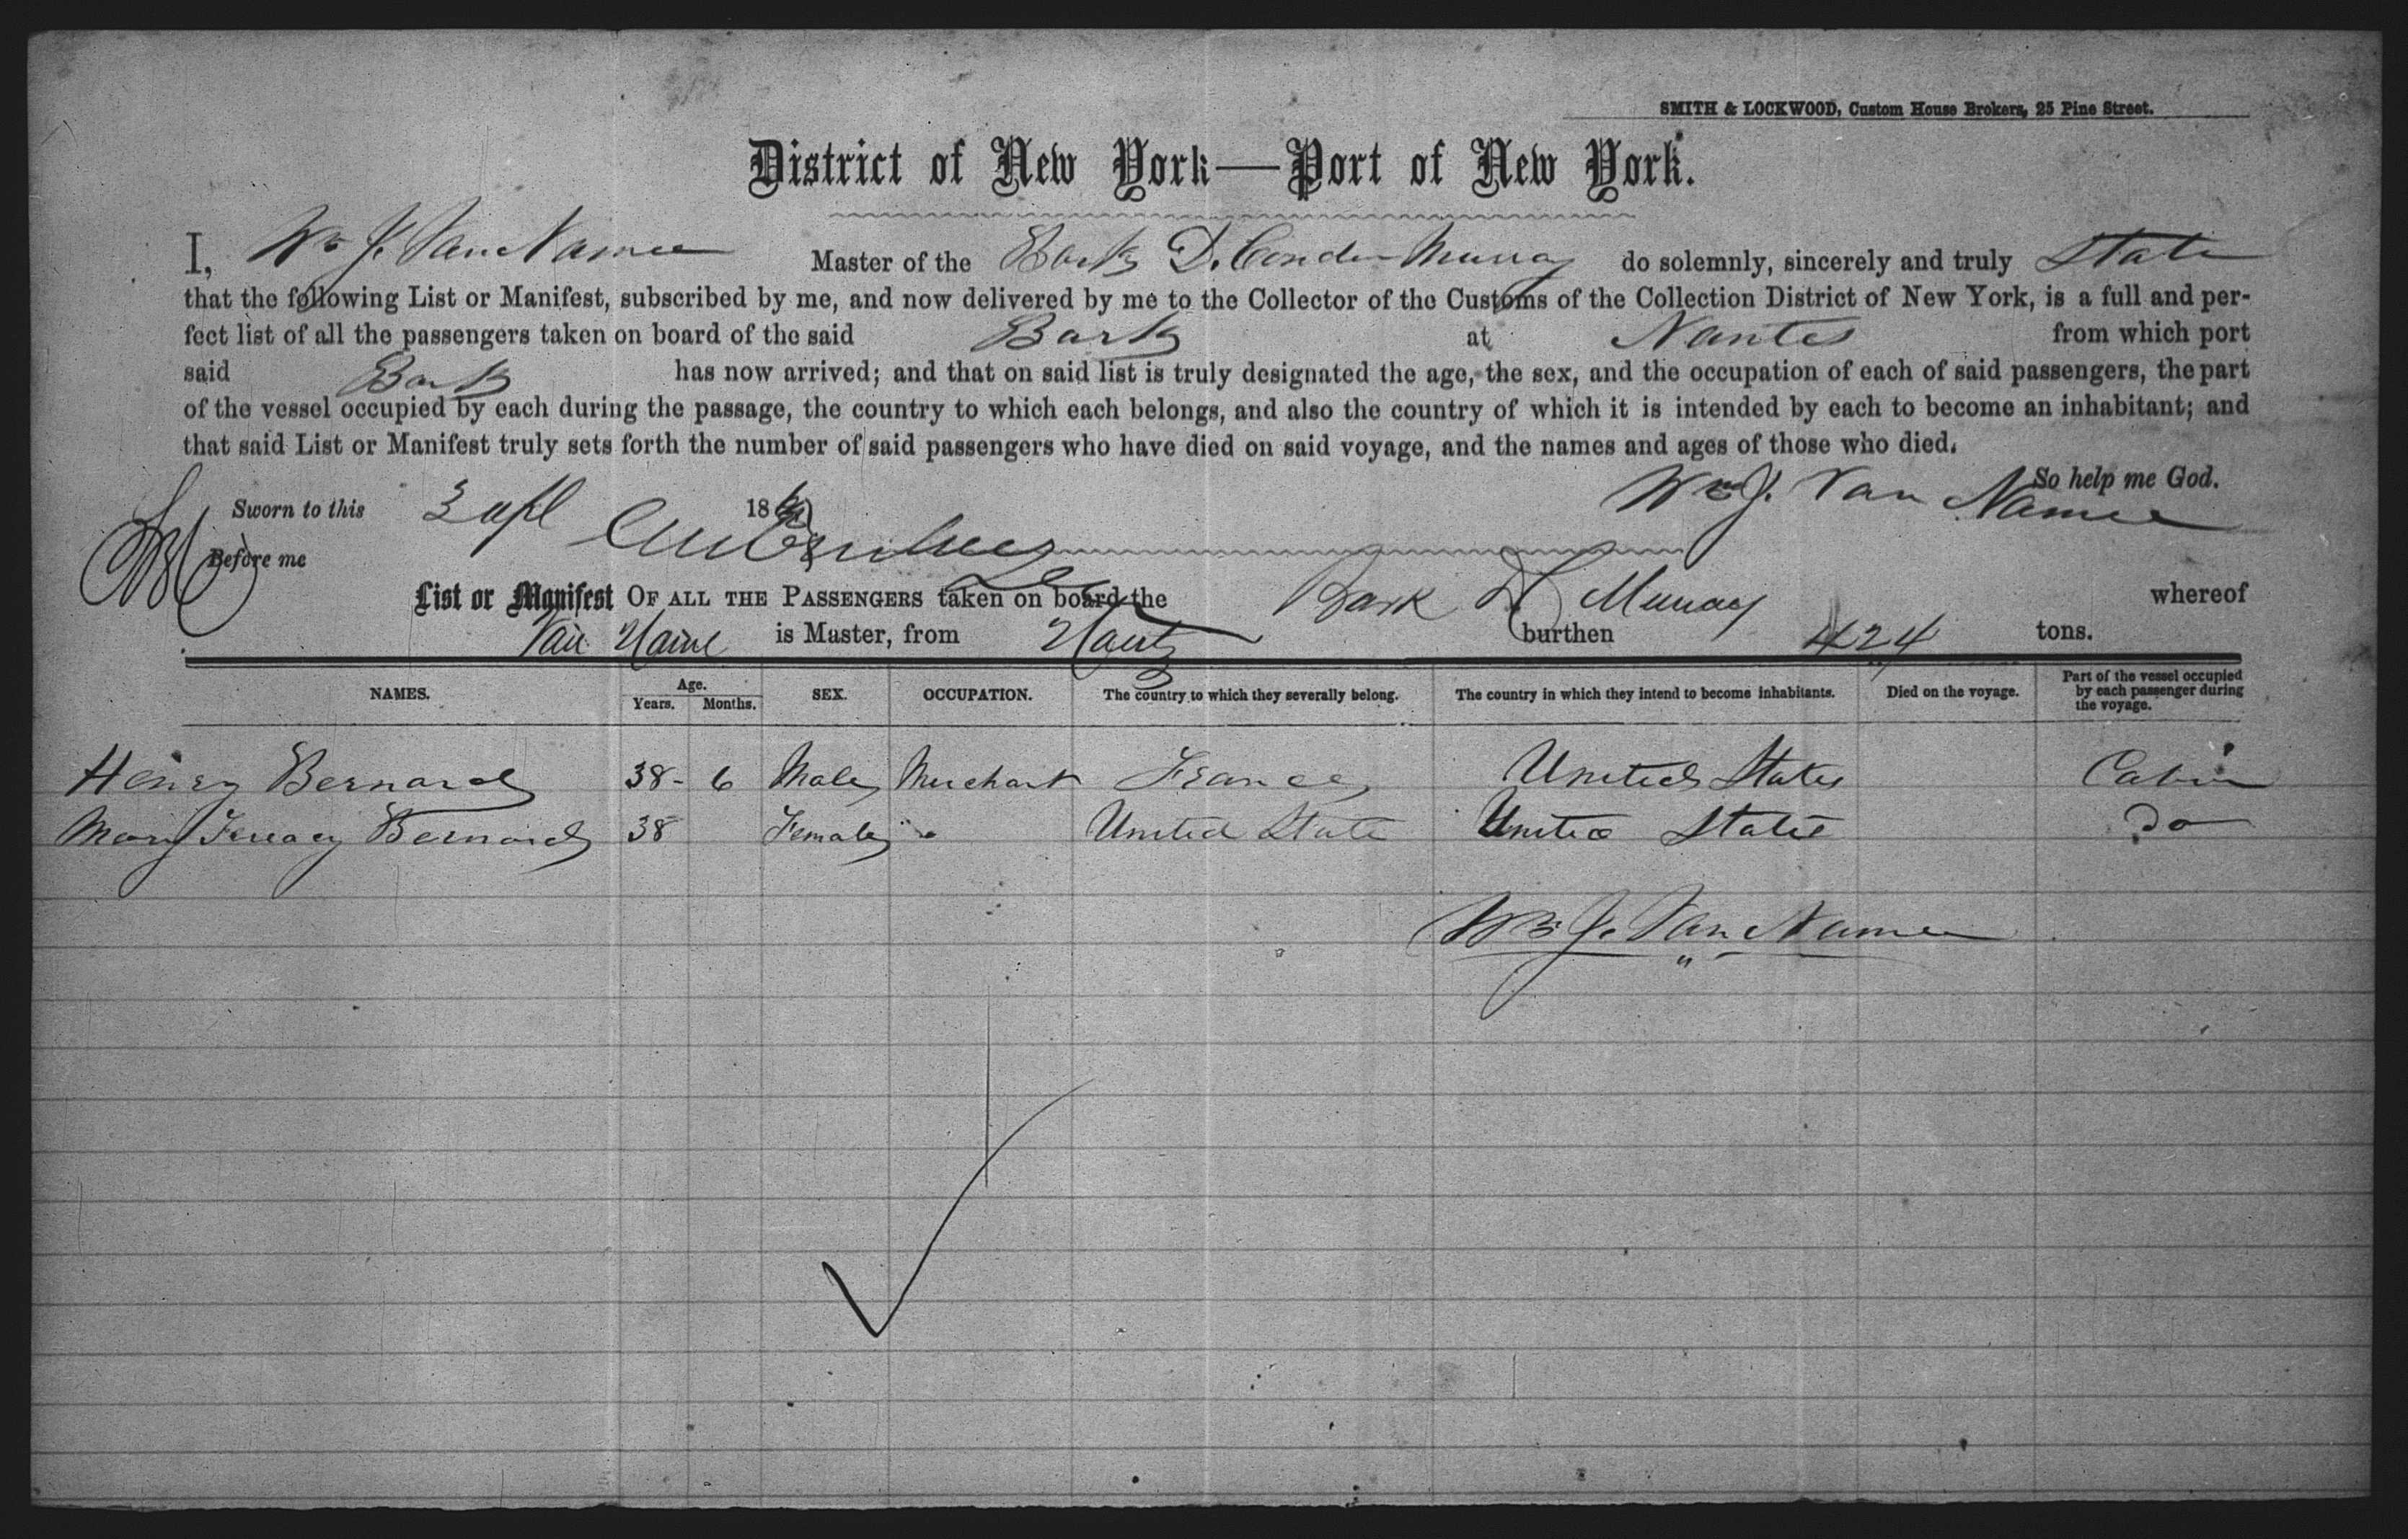 SMITH & LOCKWOOD, Custom House Brokers, 25 Pine Street.
District of New York—Port of New York.
I, Wm J. Van Namee Master of the Bark D. Murray do solemnly, sincerely and truly State
that the following List or Manifest, subscribed by me, and now delivered by me to the Collector of the Customs of the Collection District of New York, is a full and per-
fect list of all the passengers taken on board of the said Bark at Nantes from which port
said Bark has now arrived; and that on said list is truly designated the age, the sex, and the occupation of each of said passengers, the part
of the vessel occupied by each during the passage, the country to which each belongs, and also the country of which it is intended by each to become an inhabitant; and
that said List or Manifest truly sets forth the number of said passengers who have died on said voyage, and the names and ages of those who died.
So help me God.
Wm J. Van Namee
Sworn to this 3 apl 186
Before me
List or Manifest OF ALL THE PASSENGERS taken on board the Bark D C Murray whereof
Van Name is Master, from Nantz burthen 424 tons.
NAMES. Age. Years. Months. SEX. OCCUPATION. The country to which they severally belong. The country in which they intend to become inhabitants. Died on the voyage. Part of the vessel occupied by each passenger during the voyage.
Henry Bernard 38 - 6 Male Merchant France United States Cabin
Mary Bernard 38 Female " United State United States Do
Wm J. Van Namee